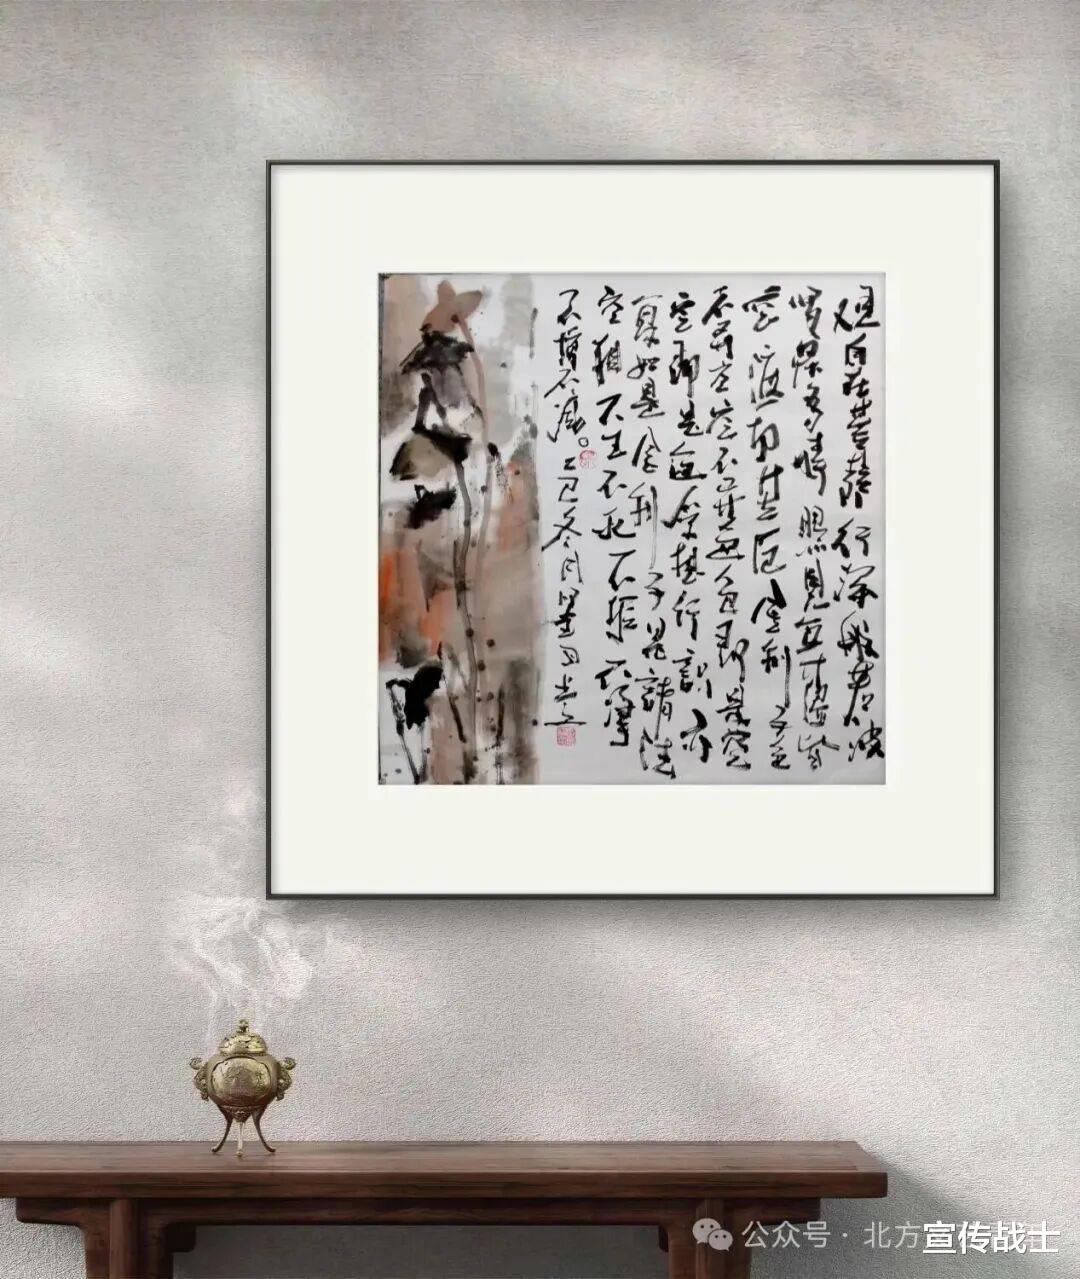 观自在菩萨行深般若波
罗蜜多時照見五蕴皆
空度一切苦厄舍利子色
不异空空不异色色即是空
空即是色受想行识亦
复如是舍利子是諸法
空相不生不灭不垢不净
不增不减。
乙巳冬月
公众号 · 北方
宣传战士